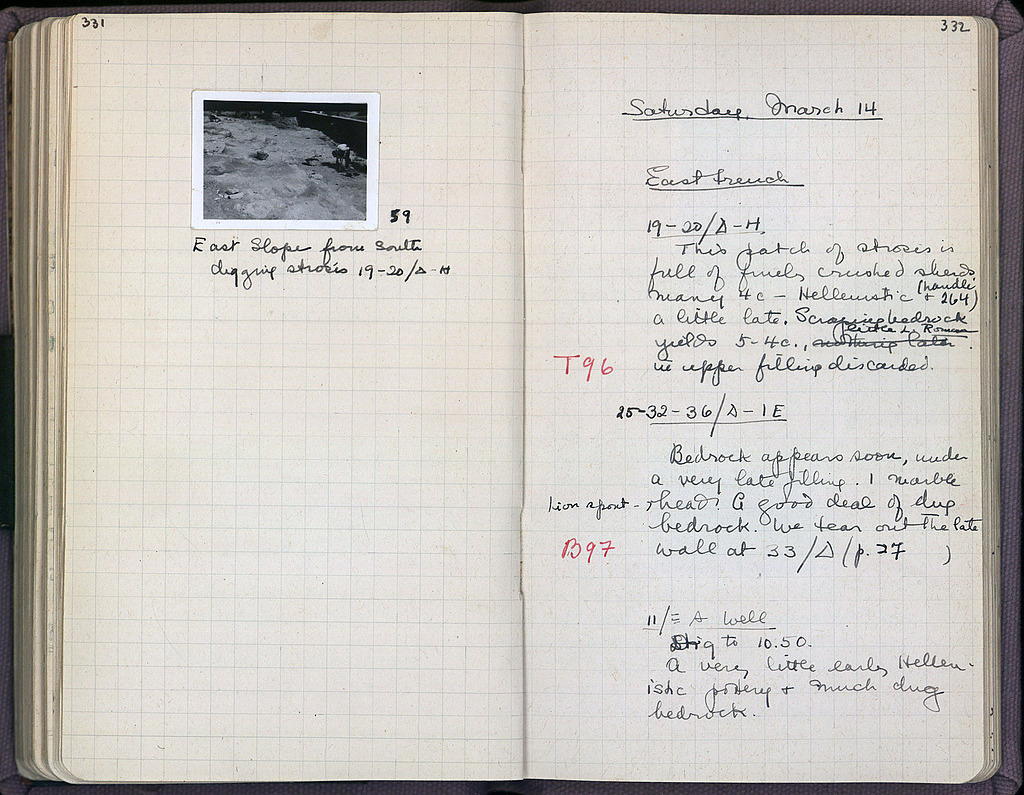 331
59
East Slope from South
digging strosis 19-20/Δ-H
332
Saturday, March 14
East Trench
19-20/Δ-H.
This patch of strosis is
full of finely crushed sherds
many 4c - Hellenistic (handle + 264)
a little late. Scraping bedrock
yields 5-4c., nothing later little L. Roman.
T96 in upper filling discarded.
25-32-36/Δ-IE
Bedrock appears soon, under
a very late filling. 1 marble
lion spout - head. A good deal of dug
bedrock. We tear out the late
B97 wall at 33/Δ (p. 27 )
11/Ξ A well
Dig to 10.50.
A very little early Hellen-
istic pottery + much dug
bedrock.